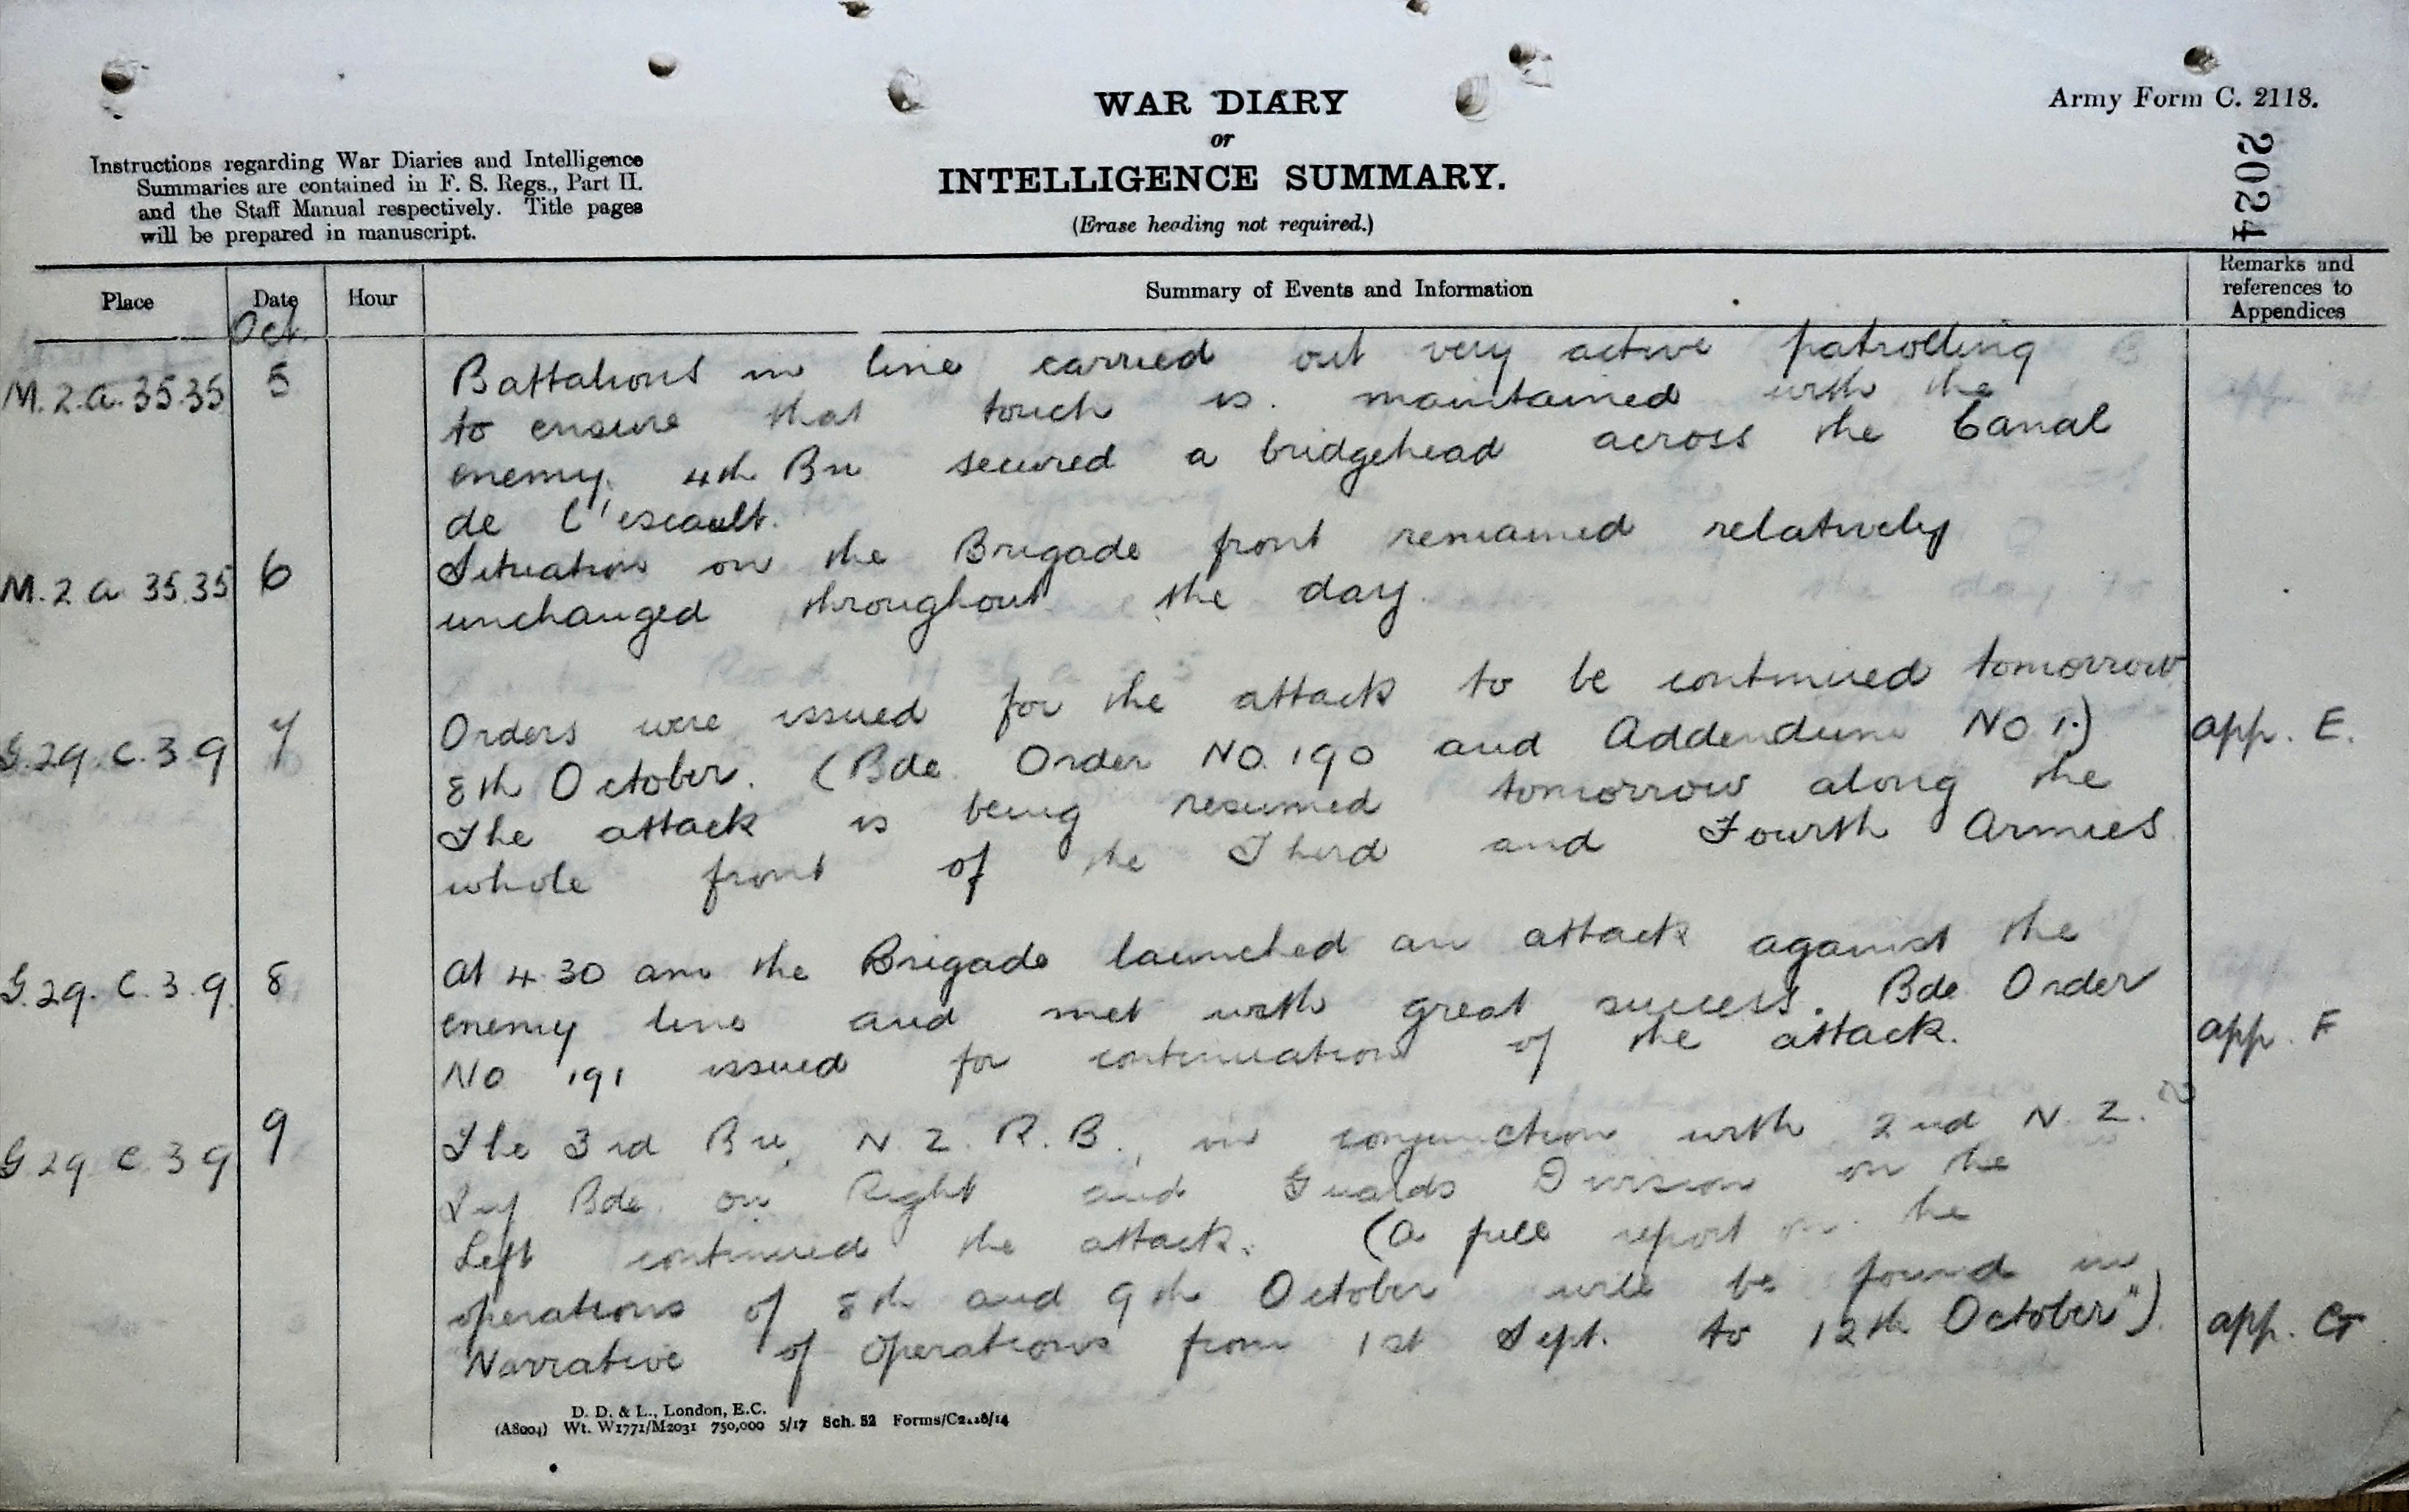 WAR DIARY
or
INTELLIGENCE SUMMARY.
(Erase heading not required.)
Army Form C. 2118.
2024
Instructions regarding War Diaries and Intelligence
Summaries are contained in F. S. Regs., Part II.
and the Staff Manual respectively. Title pages
will be prepared in manuscript.
Place
Date
Hour
Summary of Events and Information
Remarks and
references to
Appendices
Oct.
M.2.a.35.35
5
Battalions in line carried out very active patrolling
to ensure that touch is maintained with the
enemy. 4th Bn secured a bridgehead across the Canal
de l'escault.
M.2.a 35.35
6
Situation on the Brigade front remained relatively
unchanged throughout the day.
G.29.c.3.9
7
Orders were issued for the attack to be continued tomorrow
8th October. (Bde Order No. 190 and Addendum No 1.)
app. E.
The attack is being resumed tomorrow along the
whole front of the Third and Fourth Armies.
G.29.c.3.9.
8
At 4.30 am the Brigade launched an attack against the
enemy line and met with great success. Bde Order
No 191 issued for continuation of the attack.
app. F
G 29 c. 3 9
9
The 3rd Bn, N.Z.R.B., in conjunction with 2nd N.Z.
Inf Bde. on Right and Guards Division on the
Left continued the attack. (A full report on the
operations of 8th and 9th October will be found in
Narrative of Operations from 1st Sept. to 12th October")
app. G
D. D. & L., London, E.C.
(A8004) Wt. W1771/M2031 750,000 5/17 Sch. 52 Forms/C2118/14